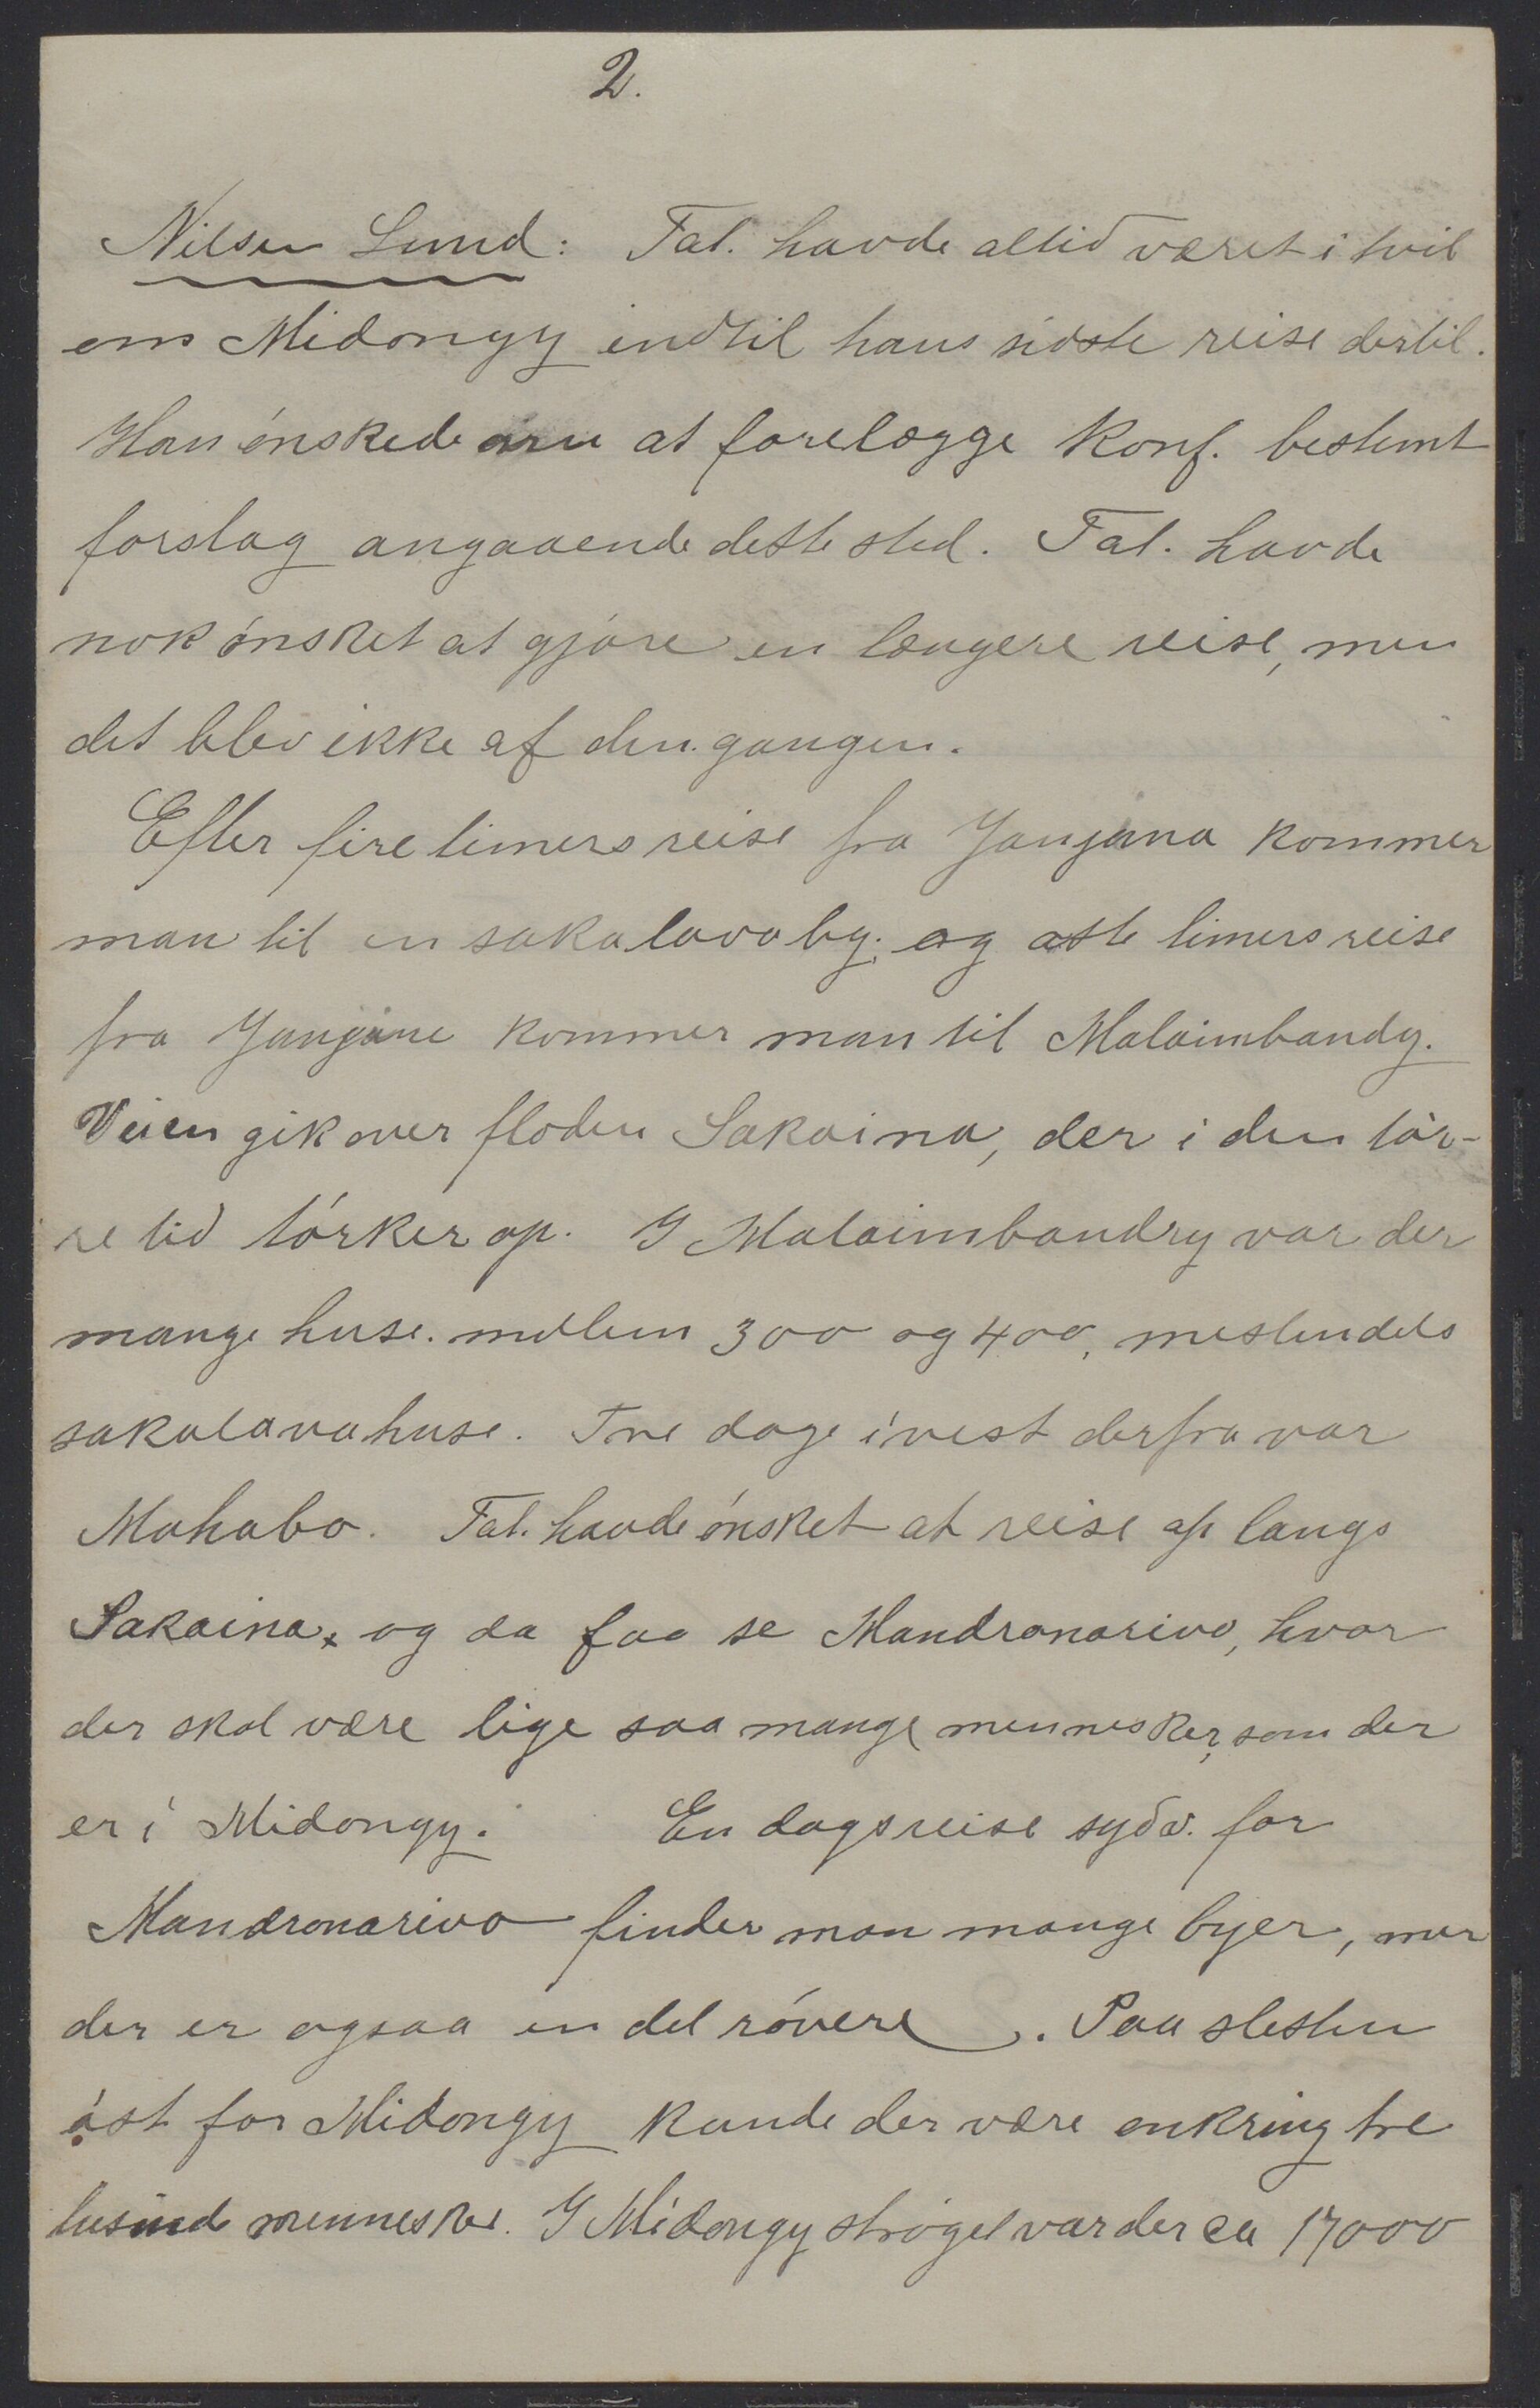 2.
Nilsen Lund: Tal. havde altid været i tvil
om Midongy indtil hans sidste reise dertil.
Han ónskede nu at forelægge Konf. bestemt
forslag angaaende dette sted. Tal. havde
nok ónsket at gjóre en længere reise, men
det blev ikke af den gangen.
Efter fire timers reise fra Janjana kommer
man til en sakalavaby; og otte timers reise
fra Janjana kommer man til Malaimbandy.
Veien gik over floden Sakaina, der i den tór-
re tid tórker op. I Malaimbandy var der
mange huse. mellem 300 og 400, mestendels
sakalavahuse. Tre dage i vest derfra var
Mahabo. Tal. havde ónsket at reise op langs
Sakaina, og da faa se Mandronarivo, hvor
der skal være lige saa mange mennesker, som der
er i Midongy. En dagsreise sydv. for
Mandronarivo finder man mange byer, men
der er ogsaa en del róvere. Paa sletten
óst for Midongy kunde der være omkring tre
tusind mennesker. I Midongy stróget var der ca 17000